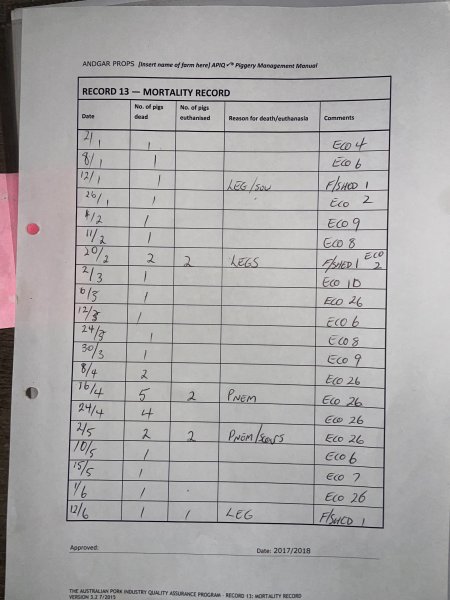 ANDGAR PROPS [Insert name of farm here] APIQ✓™ Piggery Management Manual
RECORD 13 — MORTALITY RECORD
Date No. of pigs dead No. of pigs euthanised Reason for death/euthanasia Comments
2/1 1 ECO 4
8/1 1 ECO 6
12/1 1 LEG/SOW F/SHED 1
26/1 1 ECO 2
1 ECO 9
11/2 1 ECO 8
20/2 2 2 LEGS F/SHED 1 ECO 2
2/3 1 ECO 10
1 ECO 26
12/3 1 ECO 6
24/3 1 ECO 8
30/3 1 ECO 9
8/4 2 ECO 26
16/4 5 2 PNEM ECO 26
24/4 4 ECO 26
2/5 2 2 PNEM/ ECO 26
10/5 1 ECO 6
15/5 1 ECO 7
1/6 1 ECO 26
12/6 1 1 LEG F/SHED 1
Approved: Date: 2017/2018
THE AUSTRALIAN PORK INDUSTRY QUALITY ASSURANCE PROGRAM - RECORD 13: MORTALITY RECORD
VERSION 3.2 7/2015